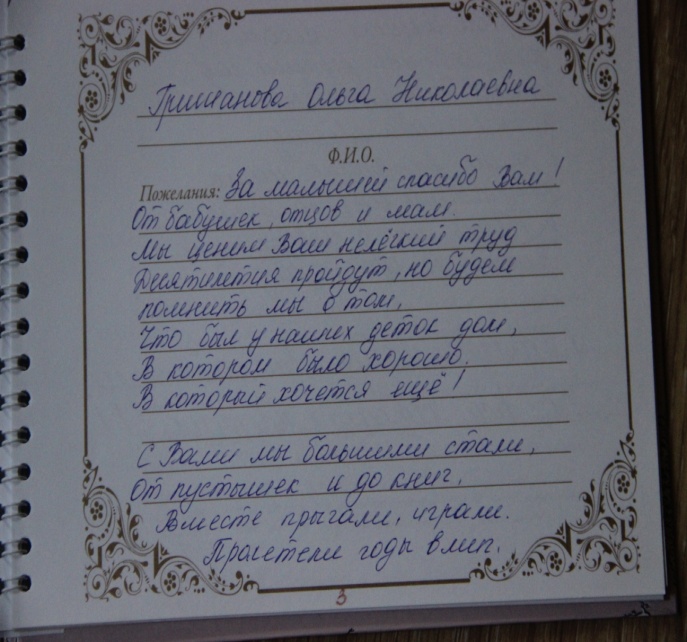 Гришанова Ольга Николаевна
Ф.И.О.
Пожелания: За малышей спасибо Вам!
От бабушек, отцов и мам.
Мы ценим Ваш нелёгкий труд
Десятилетия пройдут, но будем
помнить мы о том,
Что был у наших деток дом,
В котором было хорошо.
В который хочется ещё!
С Вами мы большими стали,
От пустышек и до книг,
Вместе прыгали, играли.
Пролетели годы в миг.
3